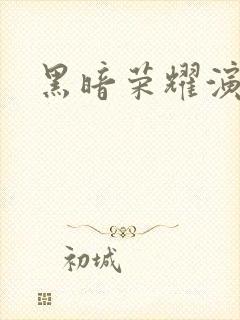 黑暗荣耀演
初城